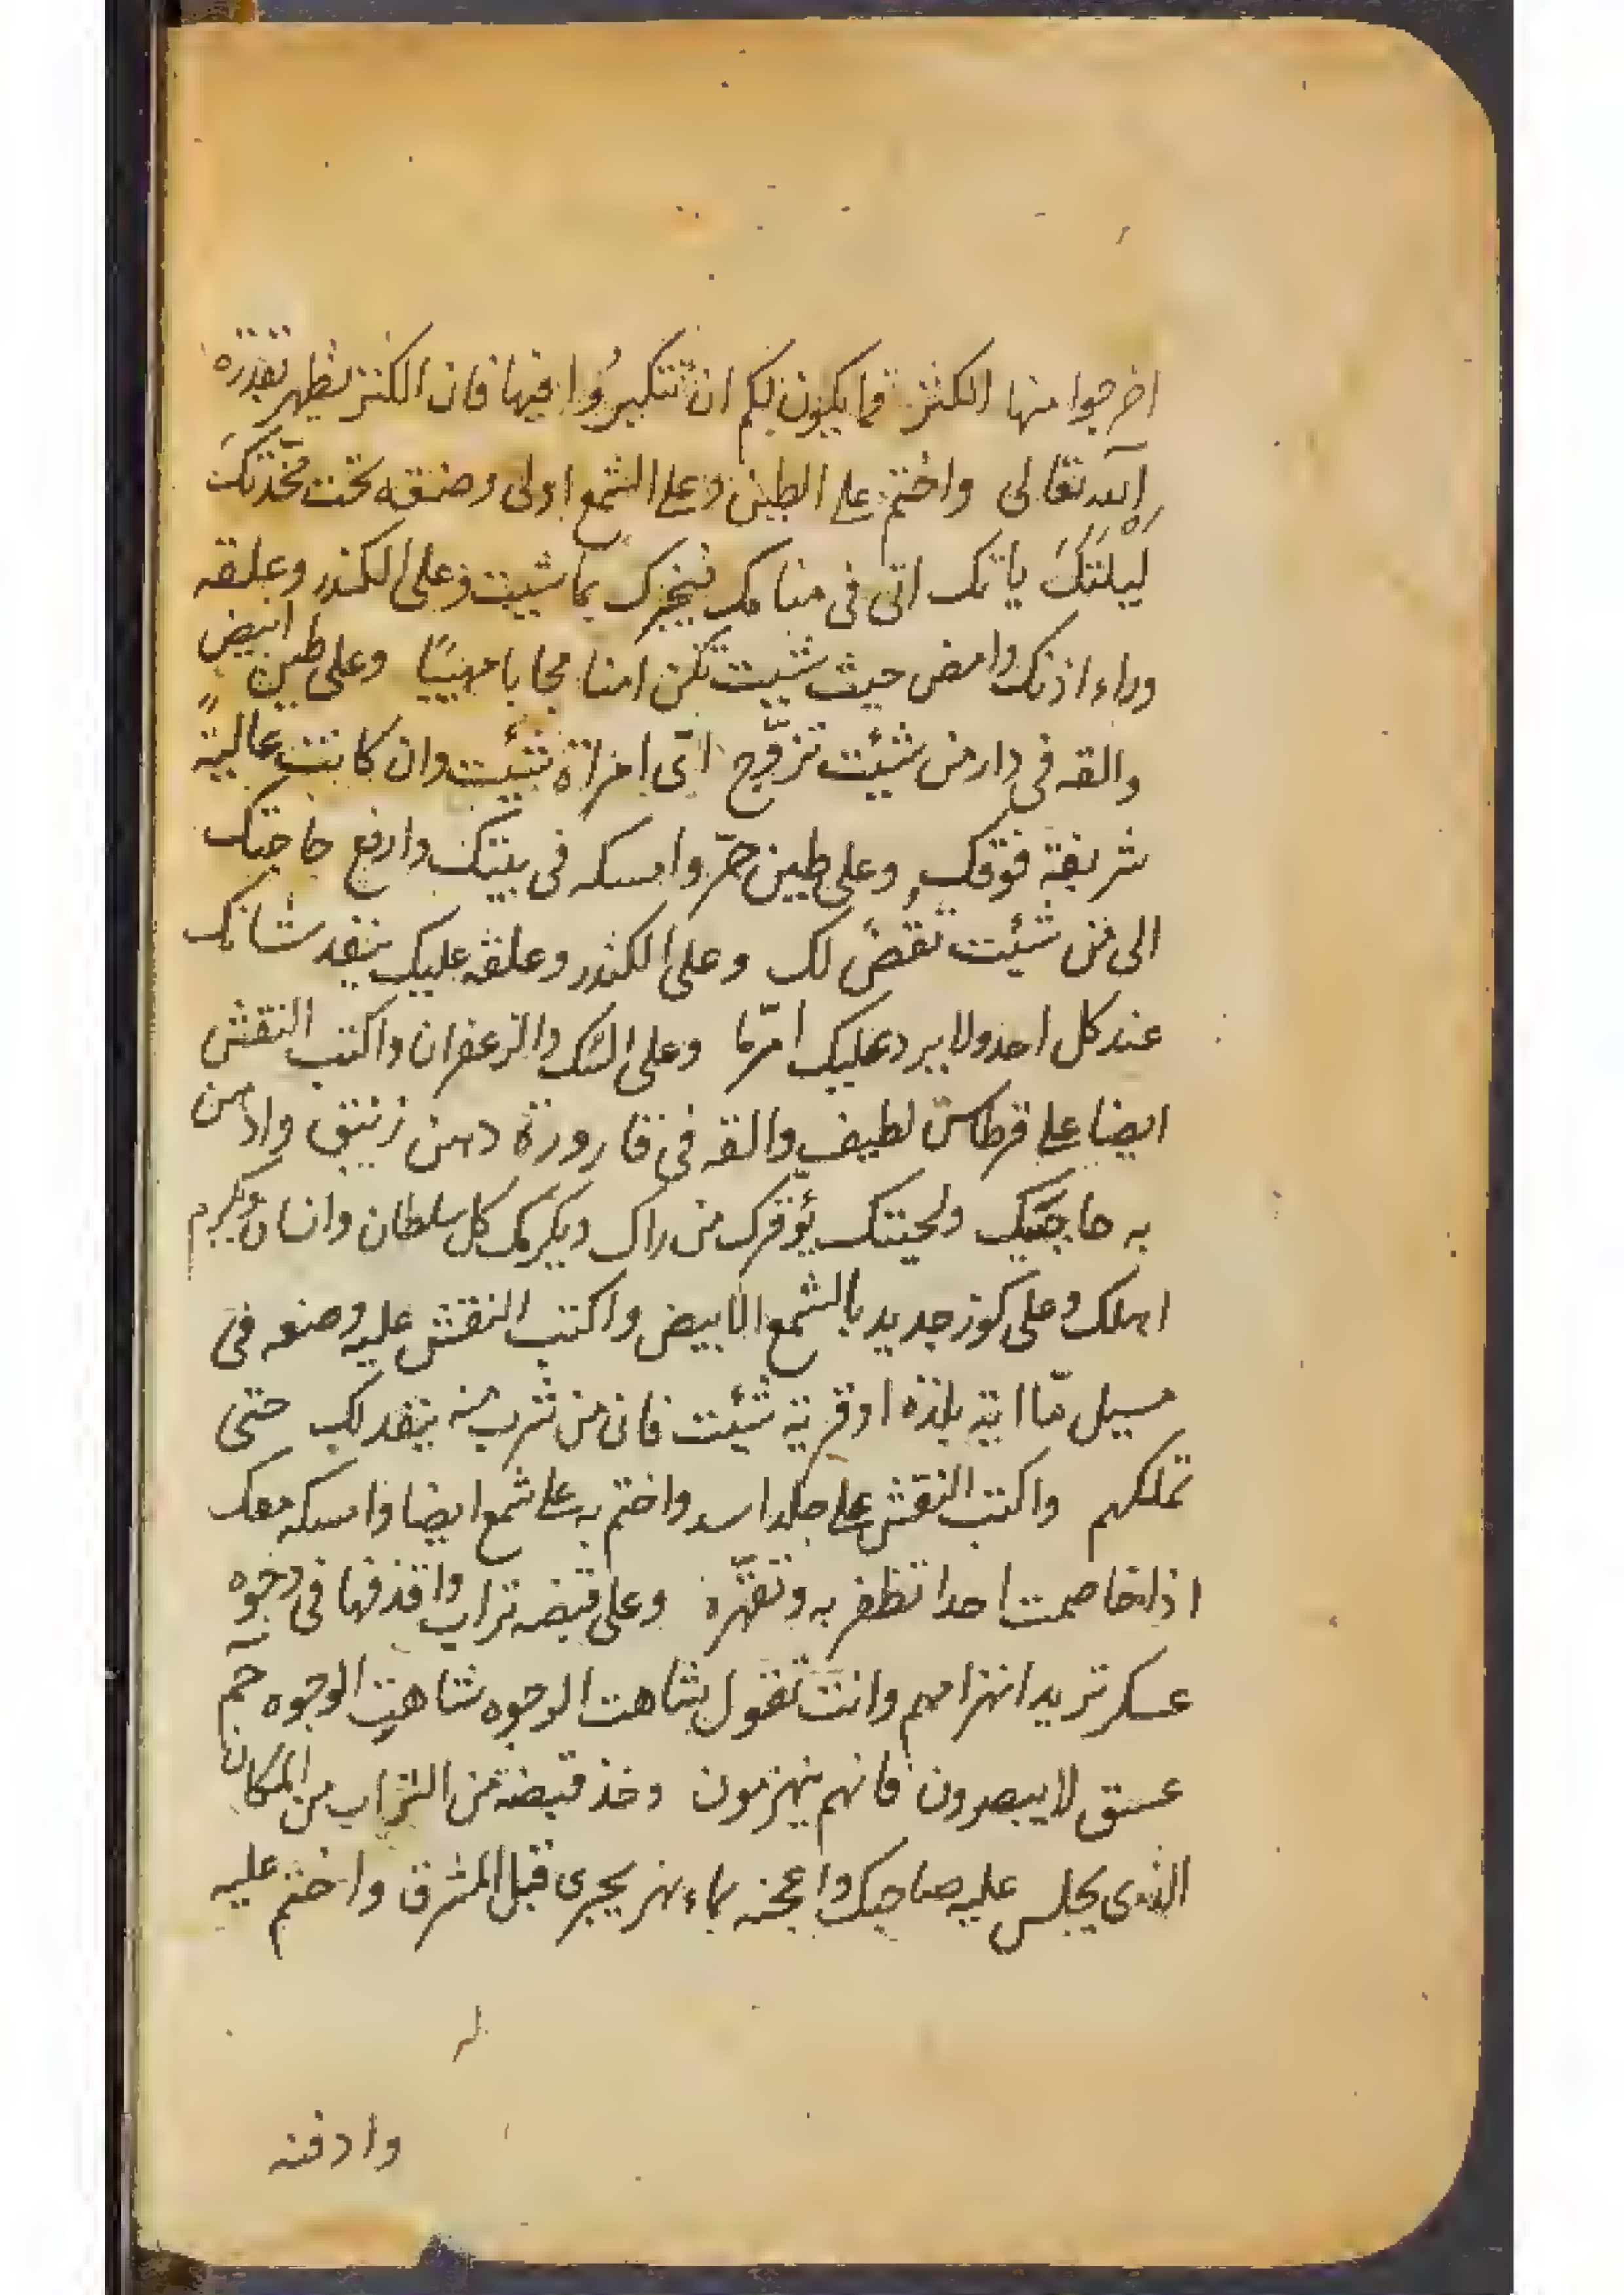 اخرجوا منها الكنز فما يكون لكم ان تتكبروا فيها فان الكنز يظهر بقدرة
الله تعالى واختم على الطين وعلى الشمع اولى وضعه تحت مخدتك
ليلتك ياتك اتى فى منامك فيخبرك بما شيت وعلى الكندر وعلقه
وراء اذنك وامض حيث شيت تكن امنا مجابا مهيبًا وعلى طين ابيض
والقه فى دار من شئت تزوّج اىّ امراة شئت وان كانت عاليةً
شريفة فوقك وعلى طين حرّ وامسكه فى بيتك وارفع حاجتك
الى من شئت تقضى لك وعلى الكندر وعلقه عليك ينفد شانك
عند كل احد ولا يرد عليك امرما وعلى السك والزعفران واكتب النقش
ايضا على قرطاس لطيف والقه فى قارورة دهن زنبق وادهن
به حاجبيك ولحيتك يؤقرك من راك ويكرمك كل سلطان وانسان ويكرم
اهلك وعلى كوز جديد بالشمع الابيض واكتب النقش عليه وضعه فى
مسيل مّا اية بلدة او قرية شئت فان من شرب منه ينفد لك حتى
تملكهم واكتب النقش على جلد اسد واختم به على شمع ايضا وامسكه معك
اذا خاصمت احدا تظفر به وتقهره وعلى قبضه تراب واقذفها فى وجوه
عسكر تريد انهزامهم وانت تقول شاهت الوجوه شاهت الوجوه حم
عسق لا يبصرون فانهم ينهزمون وخذ قبضة من التراب من المكان
الذى يجلس عليه صاحبك واعجنه بماء نهر يجرى قبل المشرق واختم عليه
وادفنه